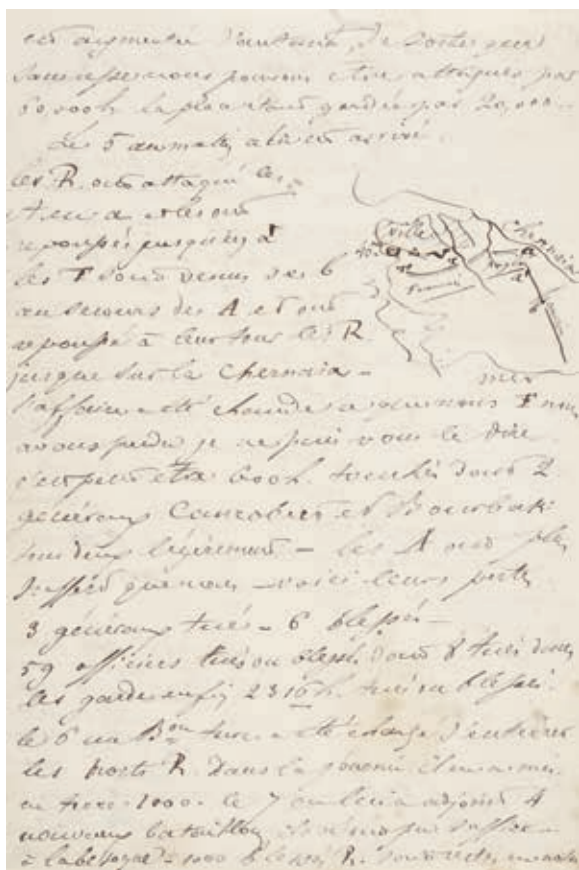 est augmentée d'autant, de sorte que
sans cesse nous pouvons être attaqués par
60,000 h. la place étant gardée par 20,000 -
Le 5 au matin, arrivé.
les R. ont attaqué les
A en a et les ont
repoussés jusqu'en a
les F sont venus vers b
au secours des A et ont
repoussé à leur tour les R.
jusque sur la Chernaia -
l'affaire a été chaude ce que nous F nous
avons perdu je ne puis vous le dire
c'est peut être 600 h. touchés dont 2
généraux Canrobert et Bourbaki
tous deux légèrement - les A ont plus
souffert que nous - voici leurs pertes
3 généraux tués - 6 blessés -
59 officiers tués ou blessés dont 8 tués dans
les gardes enfin 2316 h. tués ou blessés.
le 6 un Bon turc a été chargé d'enterrer
les morts R. dans la journée il en a mis
en terre 1000. le 7 on lui a adjoint 4
nouveaux bataillons
à la besogne - 1000 blessés R. sont restés
Ville
Chernaia
mer